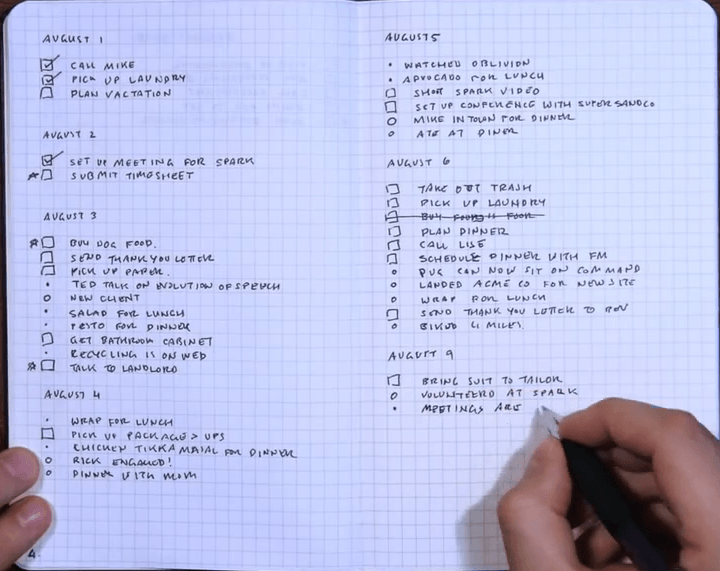 AUGUST 1
CALL MIKE
PICK UP LAUNDRY
PLAN VACTATION
AUGUST 2
SET UP MEETING FOR SPARK
SUBMIT TIMESHEET
AUGUST 3
BUY DOG FOOD.
SEND THANK YOU LETTER
PICK UP PAPER.
TED TALK ON EVOLUTION OF SPEECH
NEW CLIENT
SALAD FOR LUNCH
PESTO FOR DINNER
GET BATHROOM CABINET
RECYCLING IS ON WED
TALK TO LANDLORD
AUGUST 4
WRAP FOR LUNCH
PICK UP PACKAGE > UPS
CHICKEN TIKKA FOR DINNER
RICK ENGAGED!
DINNER WITH MOM
4
AUGUST 5
WATCHED OBLIVION
ADVOCADO FOR LUNCH
SHOOT SPARK VIDEO
SET UP CONFERENCE WITH SUPERSANDCO
MIKE IN TOWN FOR DINNER
ATE AT DINER
AUGUST 6
TAKE OUT TRASH
PICK UP LAUNDRY
BUY
PLAN DINNER
CALL LISE
SCHEDULE DINNER WITH FM
PUG CAN NOW SIT ON COMMAND
LANDED ACME CO FOR NEW SITE
WRAP FOR LUNCH
SEND THANK YOU LETTER TO BEV
4 MILES
AUGUST 9
BRING SUIT TO TAILOR
VOLUNTEERD AT SPARK
MEETINGS ARE